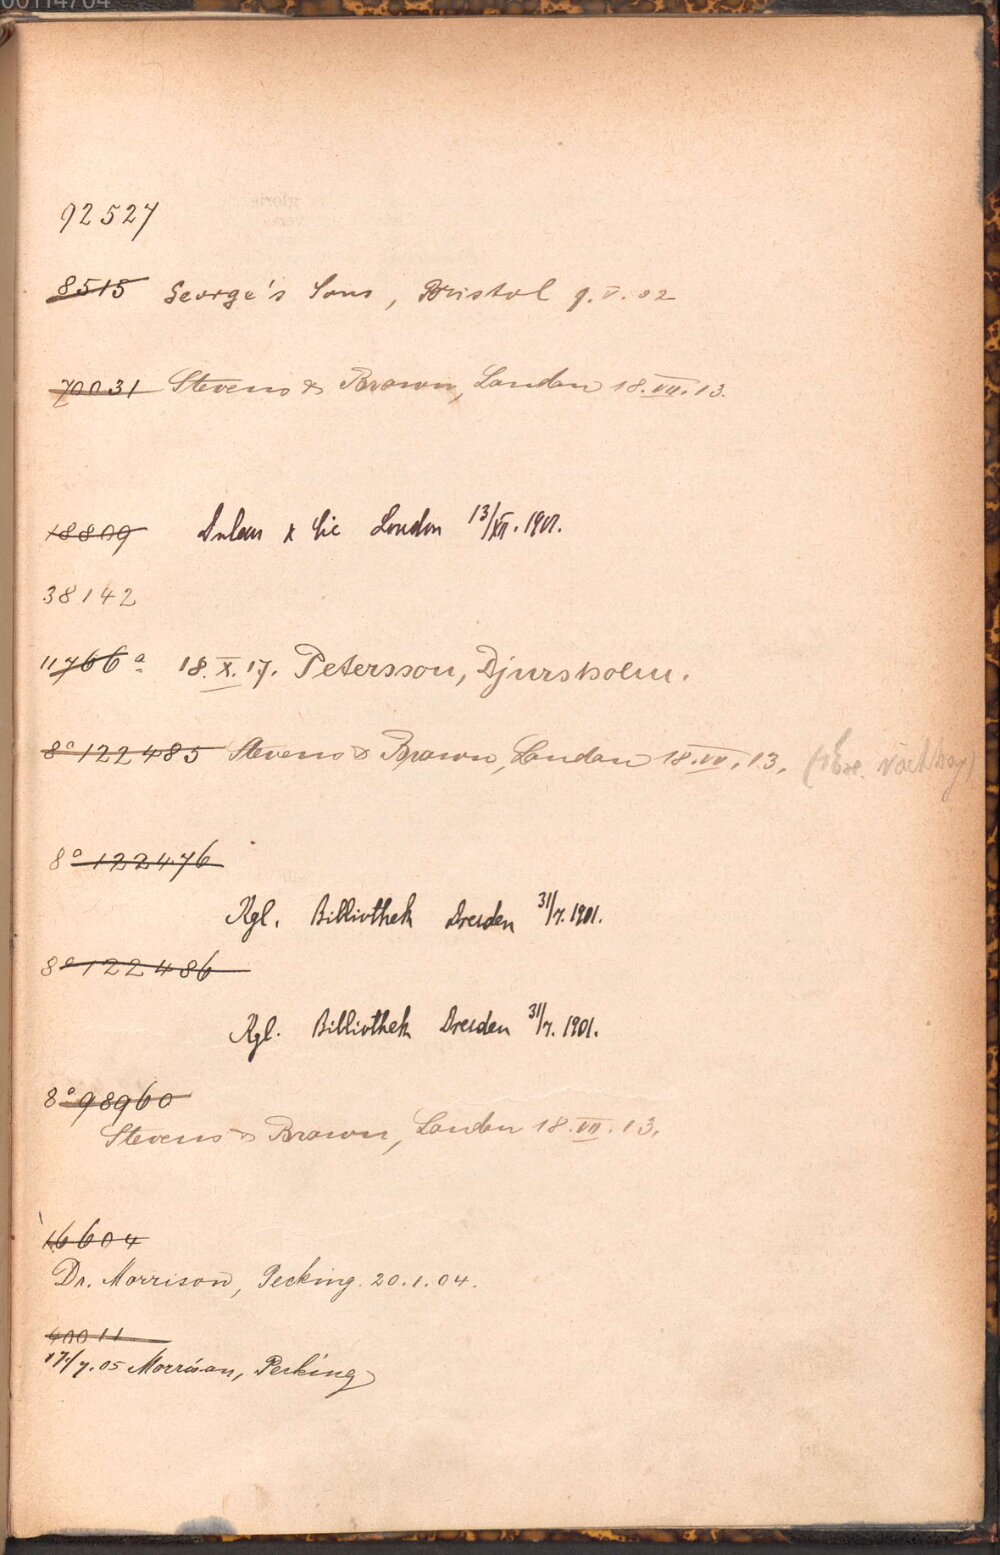 00114704
92527
8515 George's Sons, Bristol 9.V.02
70031 Stevens & Brown, London 18.VII.13.
18809 Dulau & Cie London 13/XII.1901.
38142
11766a 18.X.17. Petersson, Djursholm.
8° 122485 Stevens & Brown, London 18.VII.13.
8° 122476
Kgl. Bibliothek Dresden 31/7.1901.
8° 122486
Kgl. Bibliothek Dresden 31/7.1901.
8° 98960
Stevens & Brown, London 18.VII.13.
16604
Dr. Morrison, Pecking. 20.1.04.
40011
17/7.05 Morrison, Pecking